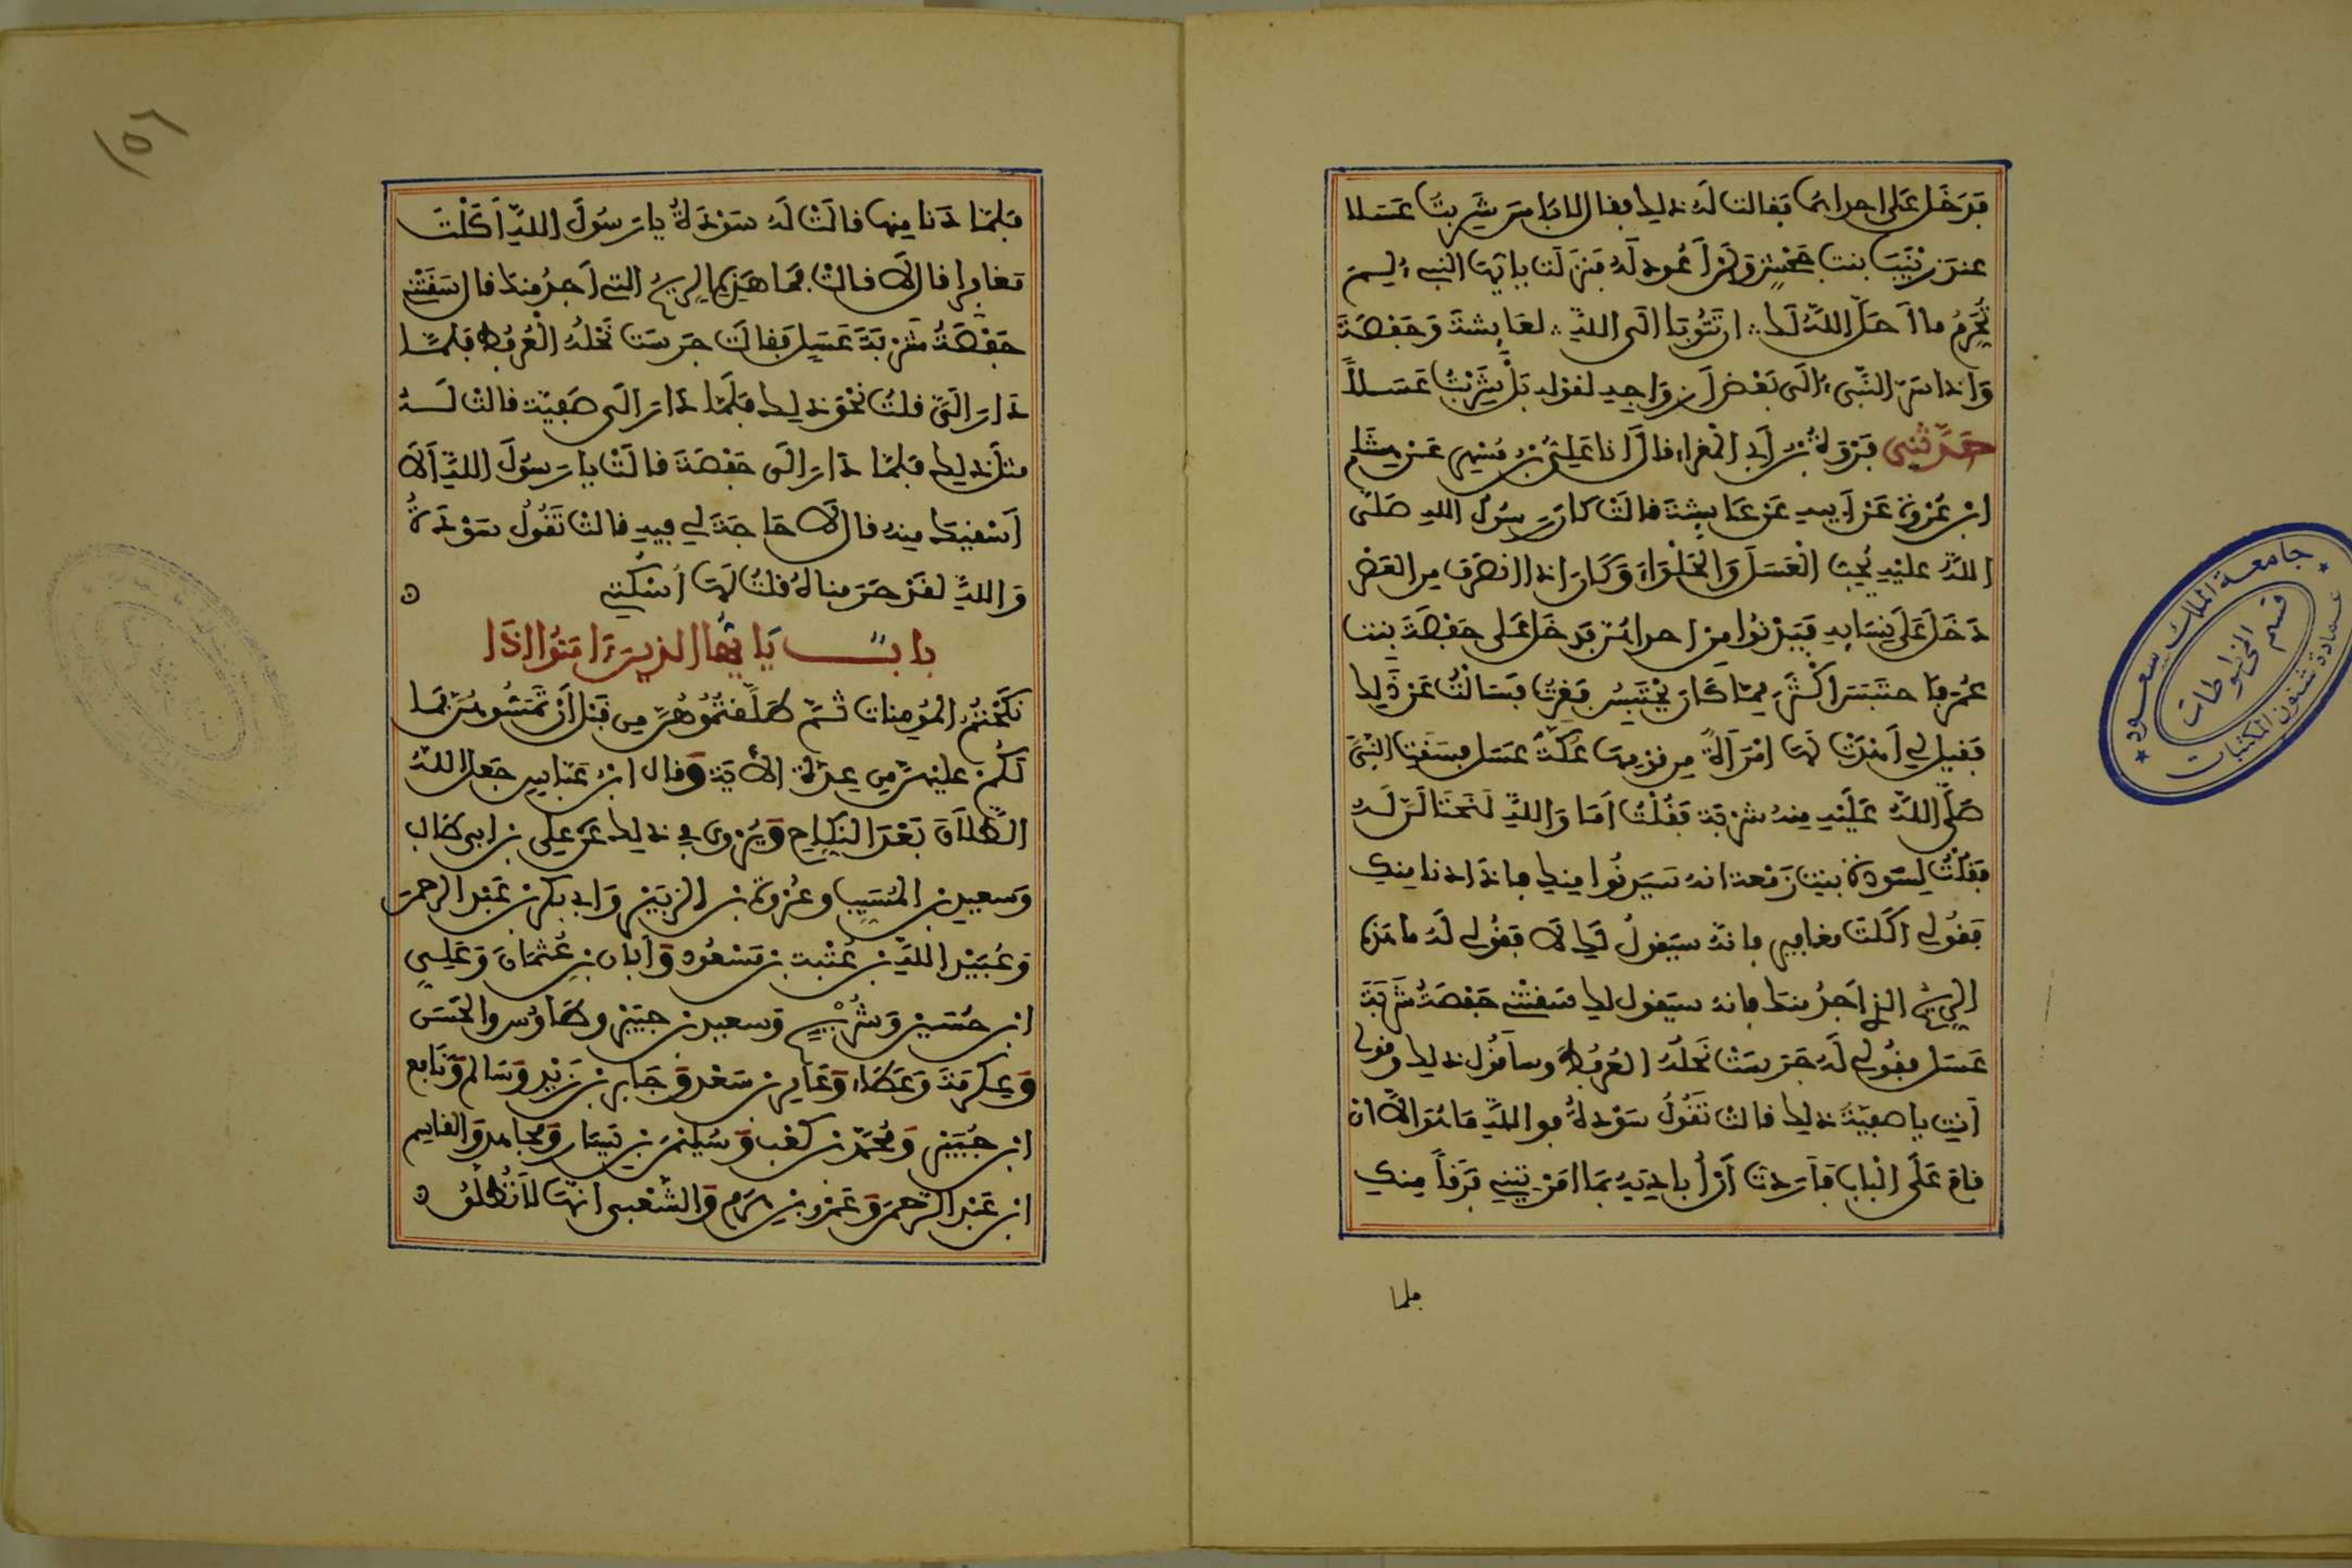 فدخل على احداهما فقالت له ذلك فقال لا بل شربت عسلا
عند زينب بنت جحش ولن أعود له فنزلت يا أيها النبي لم
تحرم ما أحل الله لك ان تتوبا الى الله لعائشة وحفصة
واذ اسر النبي الى بعض أزواجه لقوله بل شربت عسلاً
حدثني فروة بن أبي المغراء قال انا علي بن مسهر عن هشام
ابن عروة عن أبيه عن عائشة قالت كان رسول الله صلى
الله عليه يحب العسل والحلواء وكان اذا انصرف من العصر
دخل على نسائه فيدنوا من احداهن فدخل على حفصة بنت
عمر فاحتبس اكثر مما كان يحتبس فغرت فسالت عن ذلك
فقيل لي أهدت لها امرأة من قومها عكة عسل فسقت النبي
صلى الله عليه منه شربة فقلت أما والله لنحتالن له
فقلت لسودة بنت زمعة انه سيدنوا منك فاذا دنا منك
فقولي أكلت مغافير فانه سيقول لك لا فقولي له ما هذه
الريح التي أجد منك فانه سيقول لك سقتني حفصة شربة
عسل فقولي له جرست نحله العرفط وسأقول ذلك وقولي
أنت يا صفية ذلك قالت تقول سودة فوالله ما هو الا ان
قام على الباب فأردت أن أباديه بما امرتني فرقاً منك
فلما
١٥٦
فلما دنا منها قالت له سودة يا رسول الله أكلت
مغافير قال لا قالت فما هذه الريح التي أجد منك قال سقتني
حفصة شربة عسل فقالت جرست نحله العرفط فلما
دار الي قلت نحو ذلك فلما دار الى صفية قالت له
مثل ذلك فلما دار الى حفصة قالت يا رسول الله ألا
أسقيك منه قال لا حاجة لي فيه قالت تقول سودة
والله لقد حرمناه قلت لها اسكتي
باب يا أيها الذين ءامنوا اذا
نكحتم المؤمنات ثم طلقتموهن من قبل أن تمسوهن فما
لكم عليهن من عدة الأية وقال ابن عباس جعل الله
الطلاق بعد النكاح ويروى في ذلك عن علي بن ابي طالب
وسعيد بن المسيب وعروة بن الزبير وابي بكر بن عبد الرحمن
وعبيد الله بن عتبة بن مسعود وأبان بن عثمان وعلي
ابن حسين وشريح وسعيد بن جبير وطاوس والحسن
وعكرمة وعطاء وعامر بن سعد وجابر بن زيد وسالم ونافع
ابن جبير ومحمد بن كعب وسليمن بن يسار ومجاهد والقاسم
ابن عبد الرحمن وعمرو بن هرم والشعبي انها لا تطلق
جامعة الملك سعود
عمادة شئون المكتبات
قسم المخطوطات